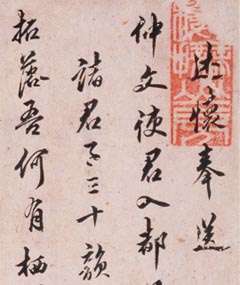 述懷奉送
仲文使君入都
諸君子三十韻
拓落吾何有栖